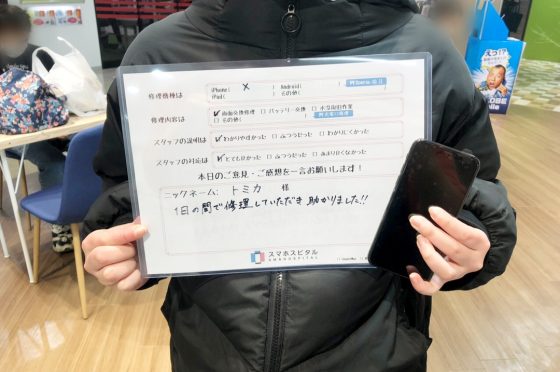 修理機種は iPhone( X ) Android( )
iPad( ) その他( )
修理内容は ☑画面交換修理 ☐バッテリー交換 ☐水没復旧作業
☐その他( )
スタッフの説明は ☑わかりやすかった ☐ふつうだった ☐わかりにくかった
スタッフの対応は ☑とても良かった ☐ふつうだった ☐あまり良くなかった
本日のご意見・ご感想を一言お願いします!
ニックネーム: トミカ 様
1日の間で修理していただき 助かりました!!
スマホスピタル
SMAHOSPITAL